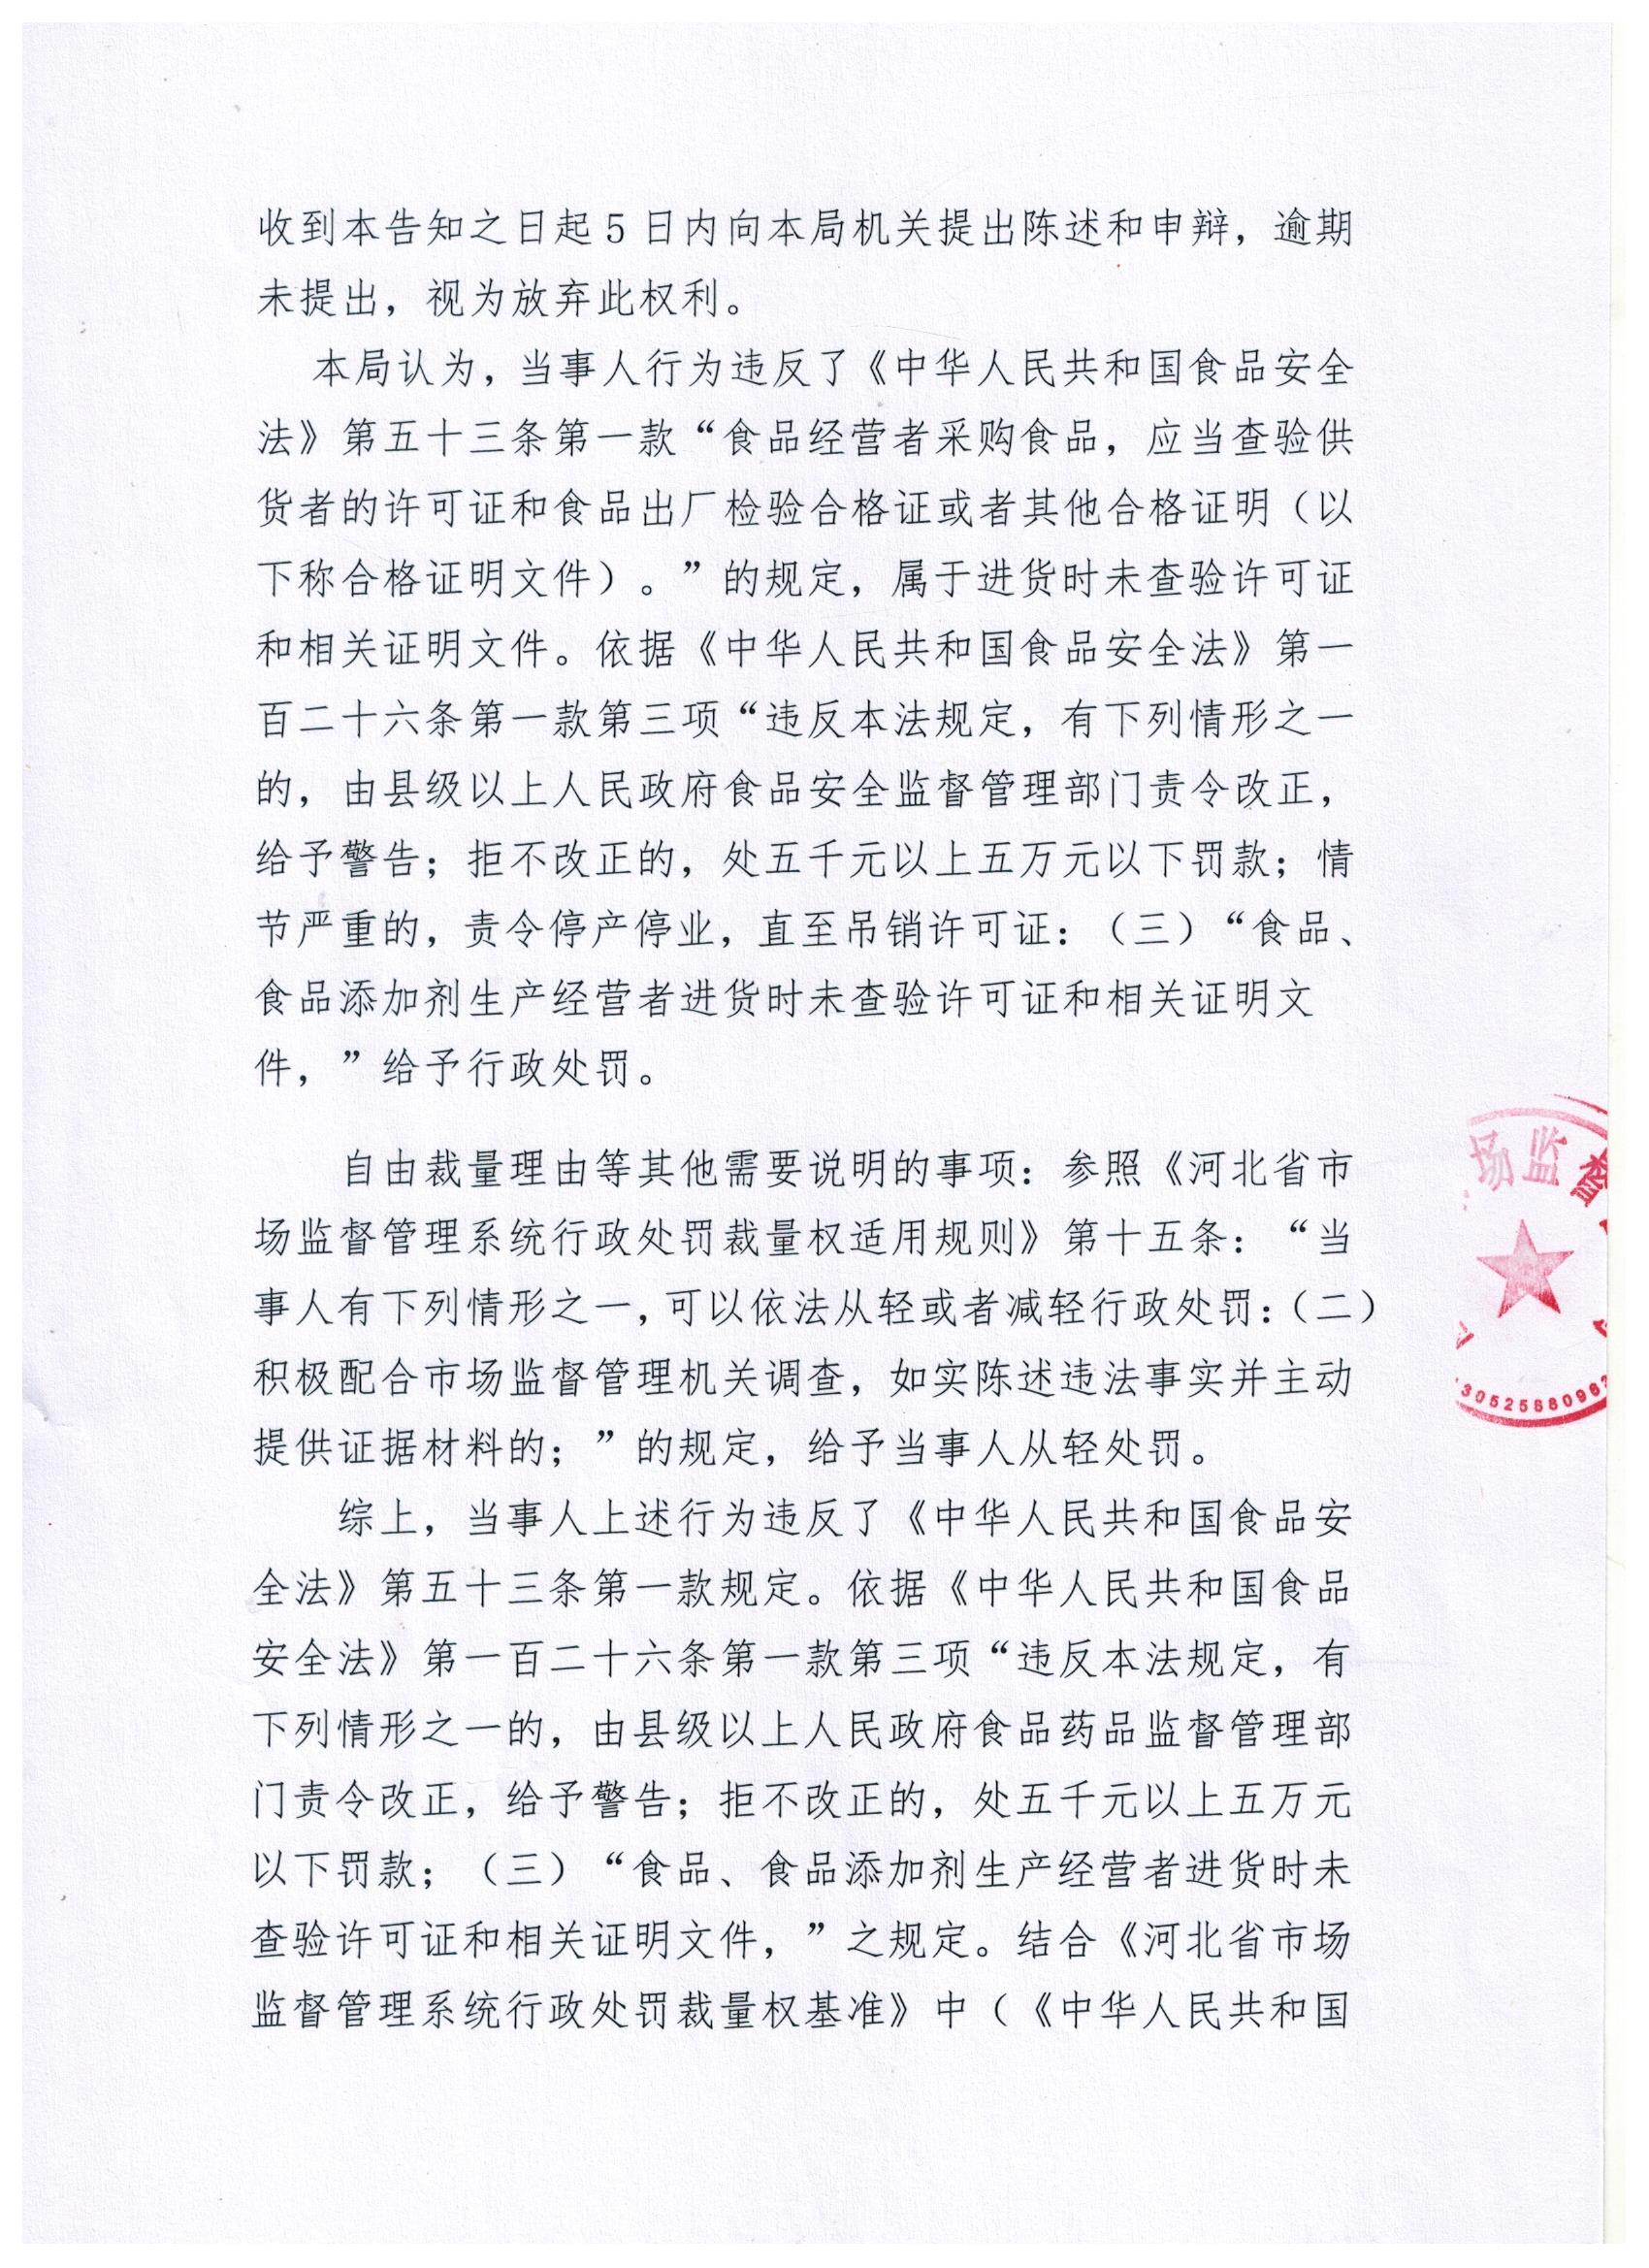 收到本告知之日起5日内向本局机关提出陈述和申辩，逾期
未提出，视为放弃此权利。
本局认为，当事人行为违反了《中华人民共和国食品安全
法》第五十三条第一款“食品经营者采购食品，应当查验供
货者的许可证和食品出厂检验合格证或者其他合格证明（以
下称合格证明文件）。”的规定，属于进货时未查验许可证
和相关证明文件。依据《中华人民共和国食品安全法》第一
百二十六条第一款第三项“违反本法规定，有下列情形之一
的，由县级以上人民政府食品安全监督管理部门责令改正，
给予警告；拒不改正的，处五千元以上五万元以下罚款；情
节严重的，责令停产停业，直至吊销许可证：（三）“食品、
食品添加剂生产经营者进货时未查验许可证和相关证明文
件，”给予行政处罚。
自由裁量理由等其他需要说明的事项：参照《河北省市
场监督管理系统行政处罚裁量权适用规则》第十五条：“当
事人有下列情形之一，可以依法从轻或者减轻行政处罚：（二）
积极配合市场监督管理机关调查，如实陈述违法事实并主动
提供证据材料的；”的规定，给予当事人从轻处罚。
综上，当事人上述行为违反了《中华人民共和国食品安
全法》第五十三条第一款规定。依据《中华人民共和国食品
安全法》第一百二十六条第一款第三项“违反本法规定，有
下列情形之一的，由县级以上人民政府食品药品监督管理部
门责令改正，给予警告；拒不改正的，处五千元以上五万元
以下罚款；（三）“食品、食品添加剂生产经营者进货时未
查验许可证和相关证明文件，”之规定。结合《河北省市场
监督管理系统行政处罚裁量权基准》中（《中华人民共和国
场监督